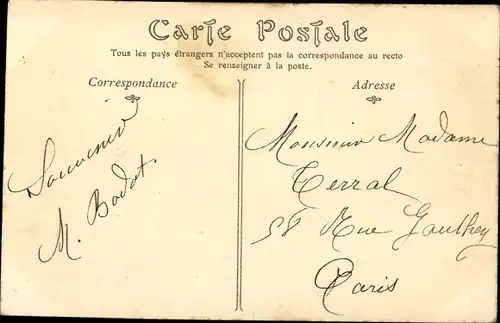 Carte Postale
Tous les pays étrangers n'acceptent pas la correspondance au recto
Se renseigner à la poste.
Correspondance
Adresse
Souvenir
M. Bodot
Monsieur Madame
Terral
58 Rue Gauthey
Paris